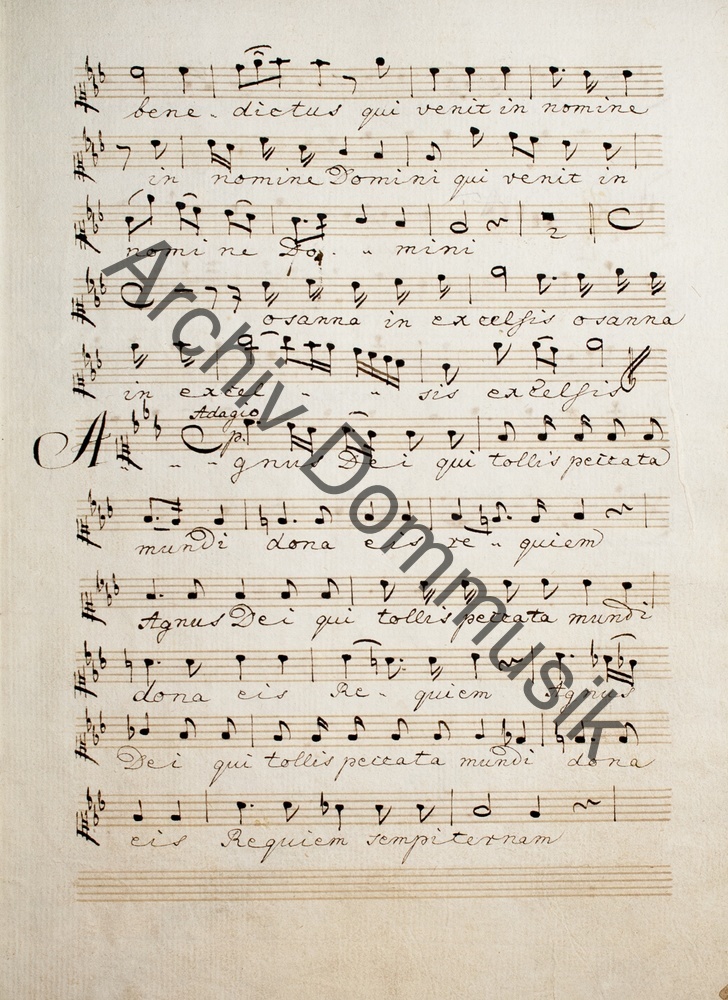 bene - dictus qui venit in nomine
in nomine Domini qui venit in
nomi ne Do - - mini
2
osanna in excelsis osanna
in excel - - sis excelsis
Adagio
p.
A - - gnus Dei qui tollis peccata
mundi dona eis re - quiem
Agnus Dei qui tollis peccata mundi
dona eis Re - quiem Agnus
Dei qui tollis peccata mundi dona
eis Requiem sempiternam
Archiv Dommusik